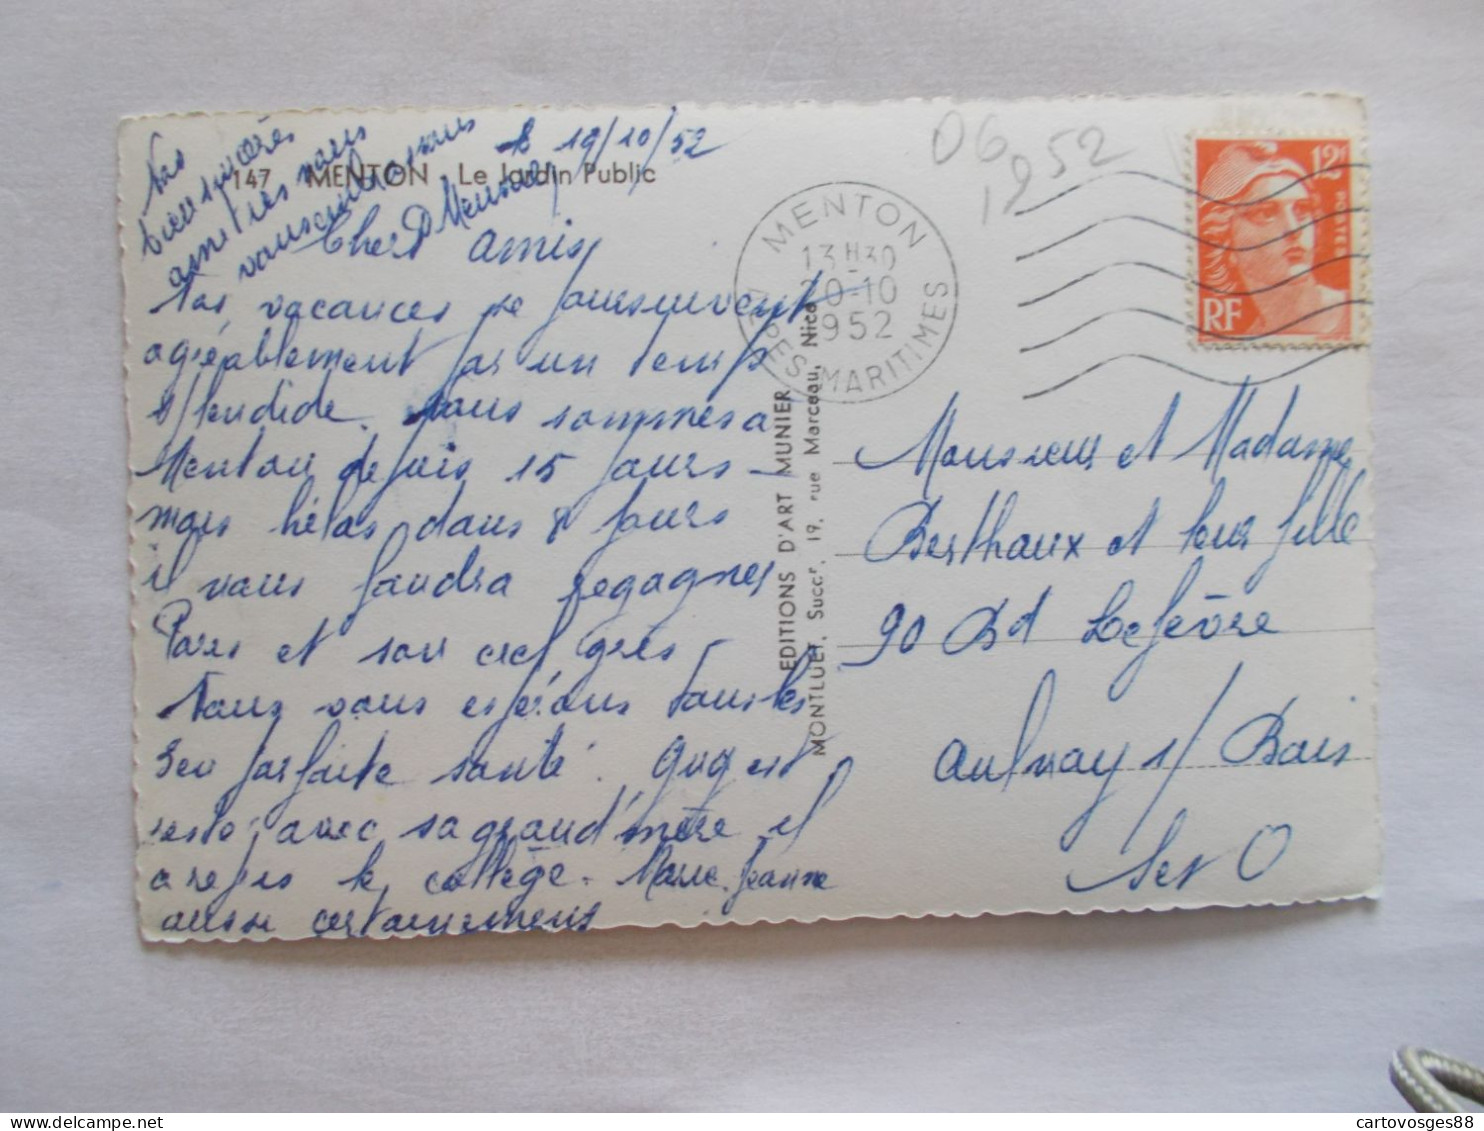 le 19/10/52
147 MENTON Le Jardin Public
Chers Amis
Nos vacances se poursuivent
agréablement par un temps
splendide. Nous sommes a
Menton depuis 15 jours -
mais hélas dans 8 jours
il nous faudra regagner
Paris et son ciel gris -
Nous vous espérons tous les
3 en parfaite santé. Guy est
resté avec sa grand'mère il
a repris le collège. Marie-Jeanne
aussi certainement
Nos
bien sincères
amitiés
EDITIONS D'ART MUNIER
MONTLUET, Succr. 19, rue Marceau, Nice
MENTON
13H30
20-10
1952
ALPES MARITIMES
06
1952
12F
POSTES
RF
Monsieur et Madame
Berthaux et leur fille
90 Bd Lefèvre
Aulnay s/ Bois
Set O
cartovosges88